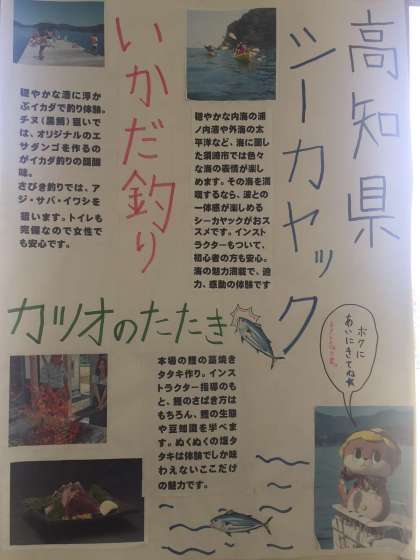 高知県
シーカヤック
穏やかな内海の浦
ノ内湾や外海の太
平洋など、海に面し
た須崎市では色々
な海の表情が楽し
めます。その海を満
喫するなら、波との
一体感が楽しめる
シーカヤックがおス
スメです。インスト
ラクターもついて、
初心者の方も安心。
海の魅力満載で、迫
力、感動の体験です
いかだ釣り
穏やかな湾に浮か
ぶイカダで釣り体験。
チヌ(黒鯛)狙いで
は、オリジナルのエ
サダンゴを作るの
がイカダ釣りの醍醐
味。
さびき釣りでは、ア
ジ・サバ・イワシを
狙います。トイレも
完備なので女性で
も安心です。
カツオのたたき
本場の鰹の藁焼き
タタキ作り。インス
トラクター指導のも
と、鰹のさばき方は
もちろん、鰹の生態
や豆知識を学べま
す。ぬくぬくの塩タ
タキは体験でしか味
わえないここだけ
の魅力です。
ボクに
あいにきてね